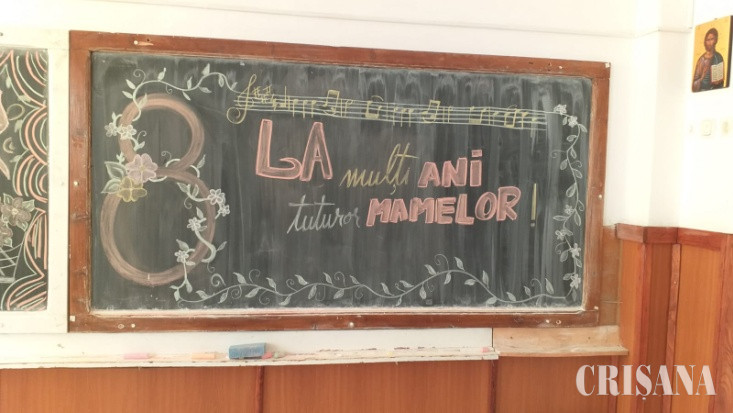 8
LA mulți ANI
tuturor MAMELOR!
CRIȘANA